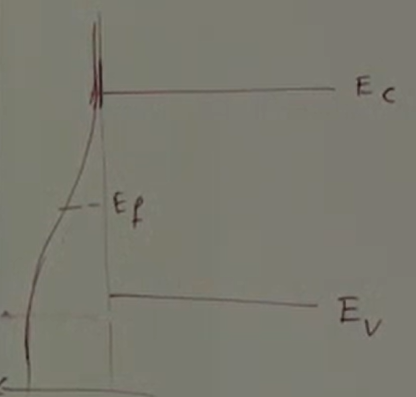 E c
E f
E v